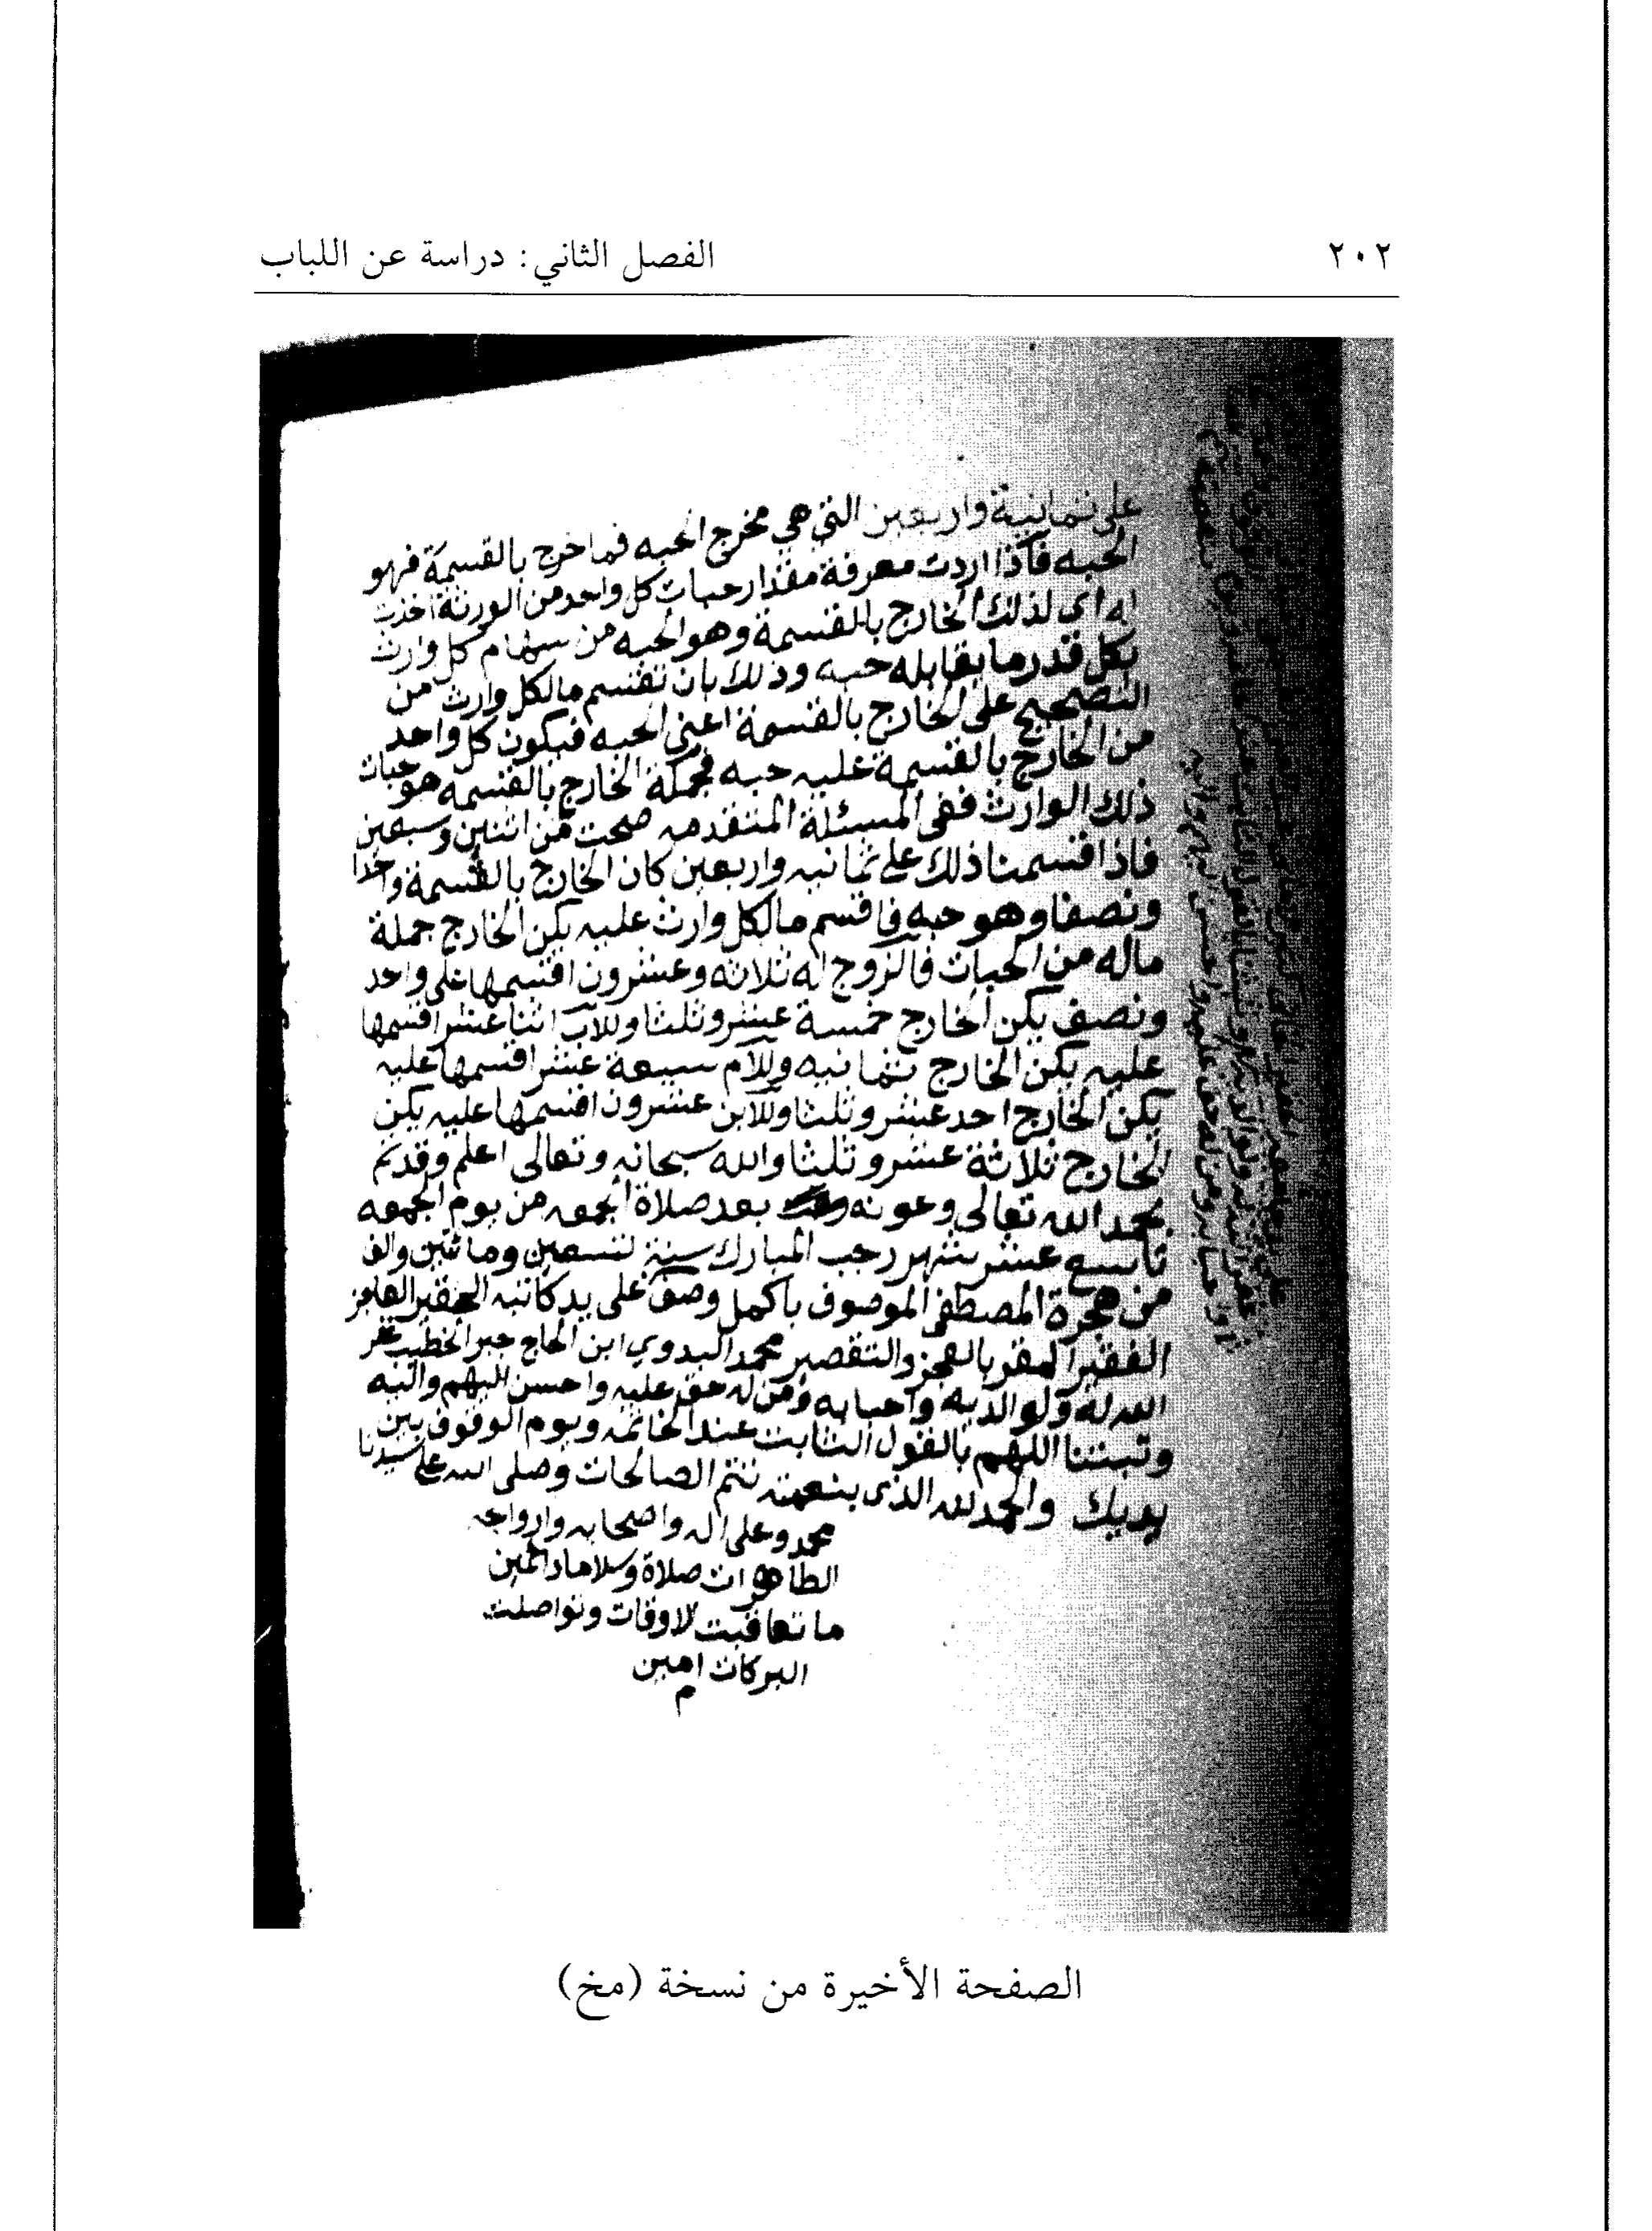 ٢٠٢
الفصل الثاني: دراسة عن اللباب
على ثمانية واربعين التي هي مخرج الحبه فما خرج بالقسمة فهو
الحبه فاذا اردت معرفة مقدار حبات كل واحد من الورثة اخذت
له اى لذلك الخارج بالقسمة وهو الحبه من سهام كل وارث
بكل قدر ما يقابله حبه وذلك بان تقسم ما لكل وارث من
التصحيح على الخارج بالقسمة اعني الحبه فيكون كل واحد
من الخارج بالقسمة عليه حبه فجملة الخارج بالقسمه هو حبات
ذلك الوارث ففي المسئلة المتقدمه صحت من اثنين وسبعين
فاذا قسمنا ذلك على ثمانيه واربعين كان الخارج بالقسمة واحدا
ونصفا وهو حبه فاقسم ما لكل وارث عليه يكن الخارج جملة
ماله من الحبات فالزوج له ثلاثه وعشرون اقسمها على واحد
ونصف يكن الخارج خمسة عشر وثلثا وللاب اثنا عشر اقسمها
عليه يكن الخارج ثمانيه وللام سبعة عشر اقسمها عليه
يكن الخارج احد عشر وثلثا وللابن عشرون اقسمها عليه يكن
الخارج ثلاثة عشر وثلثا والله سبحانه وتعالى اعلم وقد تم
بحمد الله تعالى وعونه بعد صلاة الجمعه من يوم الجمعه
تاسع عشر شهر رجب المبارك سنة تسعين ومائتين والف
من هجرة المصطفى الموصوف باكمل وصف على يد كاتبه الحقير العاجز
الفقير المقر بالعجز والتقصير محمد البدوي ابن الحاج جبر الخطيب غفر
الله له ولوالديه واحبابه ومن له حق عليه واحسن اليهم واليه
وثبتنا اللهم بالقول الثابت عند الخاتمه ويوم الوقوف بين
يديك والحمد لله الذى بنعمته تتم الصالحات وصلى الله على سيدنا
محمد وعلى اله واصحابه وازواجه
الطاهرات صلاة وسلاما دائمين
ما تعاقبت الاوقات وتواصلت
البركات امين
م
الصفحة الأخيرة من نسخة (مخ)